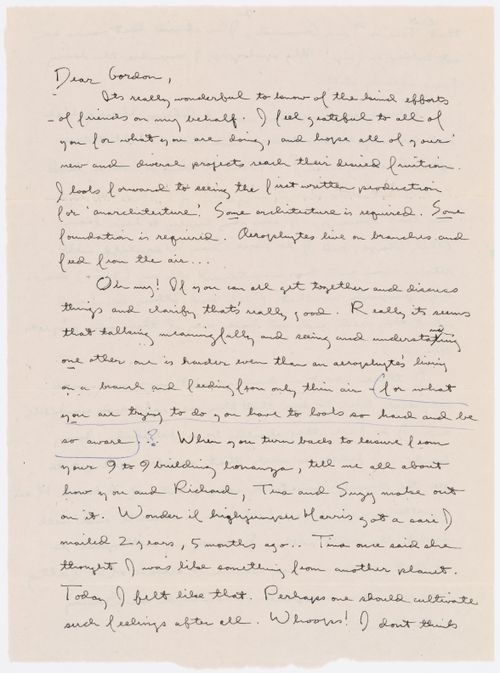 Dear Gordon,
Its really wonderful to know of the kind efforts
- of friends on my behalf. I feel grateful to all of
you for what you are doing, and hope all of your
new and diverse projects reach their desired fruition.
I look forward to seeing the first written production
for 'anarchitecture'. Some architecture is required. Some
foundation is required. Aerophytes live on branches and
feed from the air...
Oh my! If you can all get together and discuss
things and clarify that's really good. Really its seems
that talking meaningfully and seeing and understanding
one other one is harder even than an aerophyte's living
on a branch and feeding from only thin air - (for what
you are trying to do you have to look so hard and be
so aware) ? When you turn back to leisure from
your 9 to 9 building bonanza, tell me all about
how you and Richard, Tina and Suzy make out
on it. Wonder if highjumper Harris got a card I
mailed 2 years, 5 months ago.. Tina once said she
thought I was like something from another planet.
Today I felt like that. Perhaps one should cultivate
such feelings after all. Whoops! I don't think